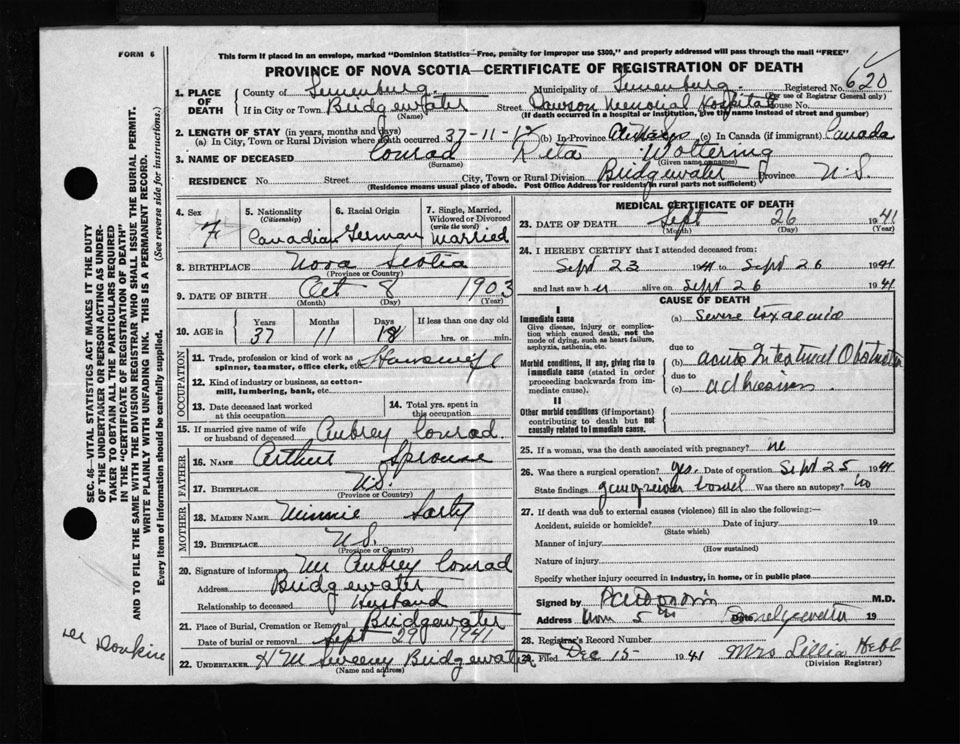 FORM 6
This form if placed in an envelope, marked "Dominion Statistics—Free, penalty for improper use $300," and properly addressed will pass through the mail "FREE"
PROVINCE OF NOVA SCOTIA—CERTIFICATE OF REGISTRATION OF DEATH
1. PLACE OF DEATH County of Lunenburg Municipality of Lunenburg Registered No. 620
(For use of Registrar General only)
If in City or Town Bridgewater Street Dawson Memorial Hospital House No.
(Name) (If death occurred in a hospital or institution, give its name instead of street and number)
2. LENGTH OF STAY (in years, months and days)
(a) In City, Town or Rural Division where death occurred 37-11-18 (b) In Province Always (c) In Canada (if immigrant) Canada
3. NAME OF DECEASED Conrad Rita Woltering
(Surname) (Given name or names)
RESIDENCE No. Street City, Town or Rural Division Bridgewater Province N.S.
(Residence means usual place of abode. Post Office Address for residents in rural parts not sufficient)
4. Sex F
5. Nationality (Citizenship) Canadian
6. Racial Origin German
7. Single, Married, Widowed or Divorced (write the word) Married
8. BIRTHPLACE Nova Scotia
(Province or Country)
9. DATE OF BIRTH Oct 8 1903
(Month) (Day) (Year)
10. AGE in Years Months Days If less than one day
37 11 18 hrs. or min.
OCCUPATION
11. Trade, profession or kind of work as spinner, teamster, office clerk, etc. Housewife
12. Kind of industry or business, as cotton-mill, lumbering, bank, etc.
13. Date deceased last worked at this occupation
14. Total yrs. spent in this occupation
15. If married give name of wife or husband of deceased Aubrey Conrad
FATHER
16. NAME Arthur Sprouse
17. BIRTHPLACE N.S.
(Province or Country)
MOTHER
18. MAIDEN NAME Minnie
19. BIRTHPLACE N.S.
(Province or Country)
20. Signature of informant Mr Aubrey Conrad
Address Bridgewater
Relationship to deceased Husband
21. Place of Burial, Cremation or Removal Bridgewater
Date of burial or removal Sept 29 1941
22. UNDERTAKER H M Sweeny Bridgewater
(Name and address)
MEDICAL CERTIFICATE OF DEATH
23. DATE OF DEATH Sept 26 1941
(Month) (Day) (Year)
24. I HEREBY CERTIFY that I attended deceased from:
Sept 23 1941 to Sept 26 1941
and last saw her alive on Sept 26 1941
CAUSE OF DEATH
I
Immediate cause
Give disease, injury or complication which caused death, not the mode of dying, such as heart failure, asphyxia, asthenia, etc.
(a) Severe toxaemia
due to
Morbid conditions, if any, giving rise to immediate cause (stated in order proceeding backwards from immediate cause).
(b) acute Intestinal Obstruction
due to
(c) adhesions
II
Other morbid conditions (if important) contributing to death but not causally related to immediate cause.
25. If a woman, was the death associated with pregnancy? no
26. Was there a surgical operation? yes. Date of operation Sept 25 1941
State findings gangrenous bowel Was there an autopsy? no
27. If death was due to external causes (violence) fill in also the following:—
Accident, suicide or homicide? Date of injury 19
(State which)
Manner of injury
(How sustained)
Nature of injury
Specify whether injury occurred in industry, in home, or in public place
Signed by M.D.
Address Date 19
28. Registrar's Record Number
29. Filed Dec 15 1941 Mrs Lillia Hebb
(Division Registrar)
SEC. 46—VITAL STATISTICS ACT MAKES IT THE DUTY
OF THE UNDERTAKER OR PERSON ACTING AS UNDER-
TAKER TO OBTAIN ALL THE PARTICULARS REQUIRED
IN THE "CERTIFICATE OF REGISTRATION OF DEATH"
AND TO FILE THE SAME WITH THE DIVISION REGISTRAR WHO SHALL ISSUE THE BURIAL PERMIT.
WRITE PLAINLY WITH UNFADING INK. THIS IS A PERMANENT RECORD.
Every item of information should be carefully supplied. (See reverse side for instructions.)
Donkin